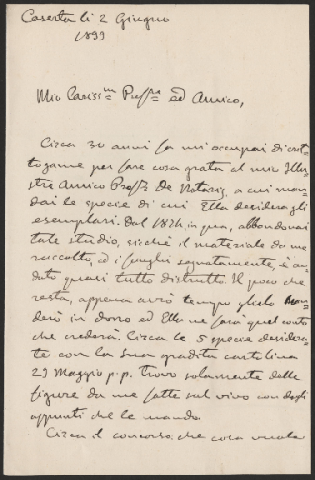 Caserta li 2 Giugno
1899
Mio Cariss.mo Prof.re ed Amico,
Circa 30 anni fa mi occupai di crit-
togame per fare cosa grata al mio Illu-
stre Amico Prof.re De Notaris, a cui man-
dai le specie di cui Ella desidera gli
esemplari. Dal 1874 in qua, abbandonai
tale studio, sicchè il materiale da me
raccolto, ed i funghi segnatamente, è an-
dato quasi tutto distrutto. Il poco che
resta, appena avrò tempo glielo man-
derò in dono ed Ella ne farà quel conto
che crederà. Circa le 5 specie desidera-
te con la sua gradita cartolina
29 Maggio p.p. trovo solamente delle
figure da me fatte sul vivo con degli
appunti che le mando.
Circa il concorso, che cosa vuole